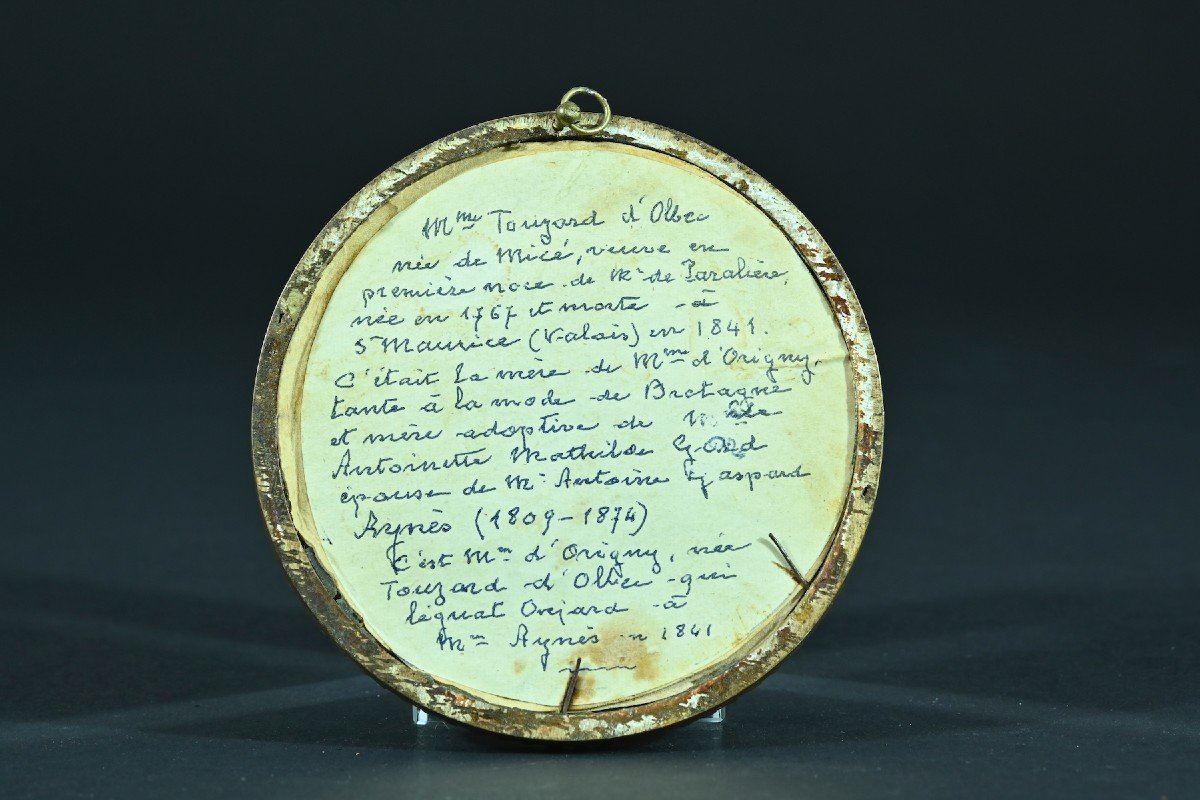 Mme Touzard d'Olbec
née de Micé, veuve en
première noce de Mr de Paralière,
née en 1767 et morte à
St Maurice (Valais) en 1841.
C'était la mère de Mme d'Origny,
tante à la mode de Bretagne
et mère adoptive de
Antoinette Mathilde
épouse de Mr Antoine Gaspard
Aynès (1809-1874)
C'est Mme d'Origny, née
Touzard d'Olbec qui
léguat Ovejard à
Mme Aynès en 1841